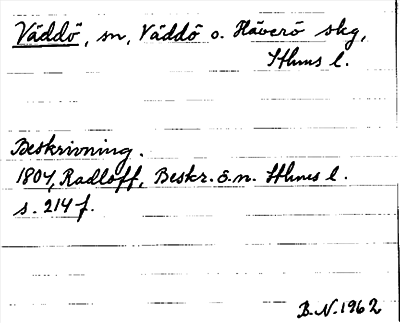 Väddö, sn, Väddö o. Häverö skg,
Sthms l.
Beskrivning.
1804, Radloff, Beskr. ö. n. Sthms l.
s. 214 f.
B.N. 1962